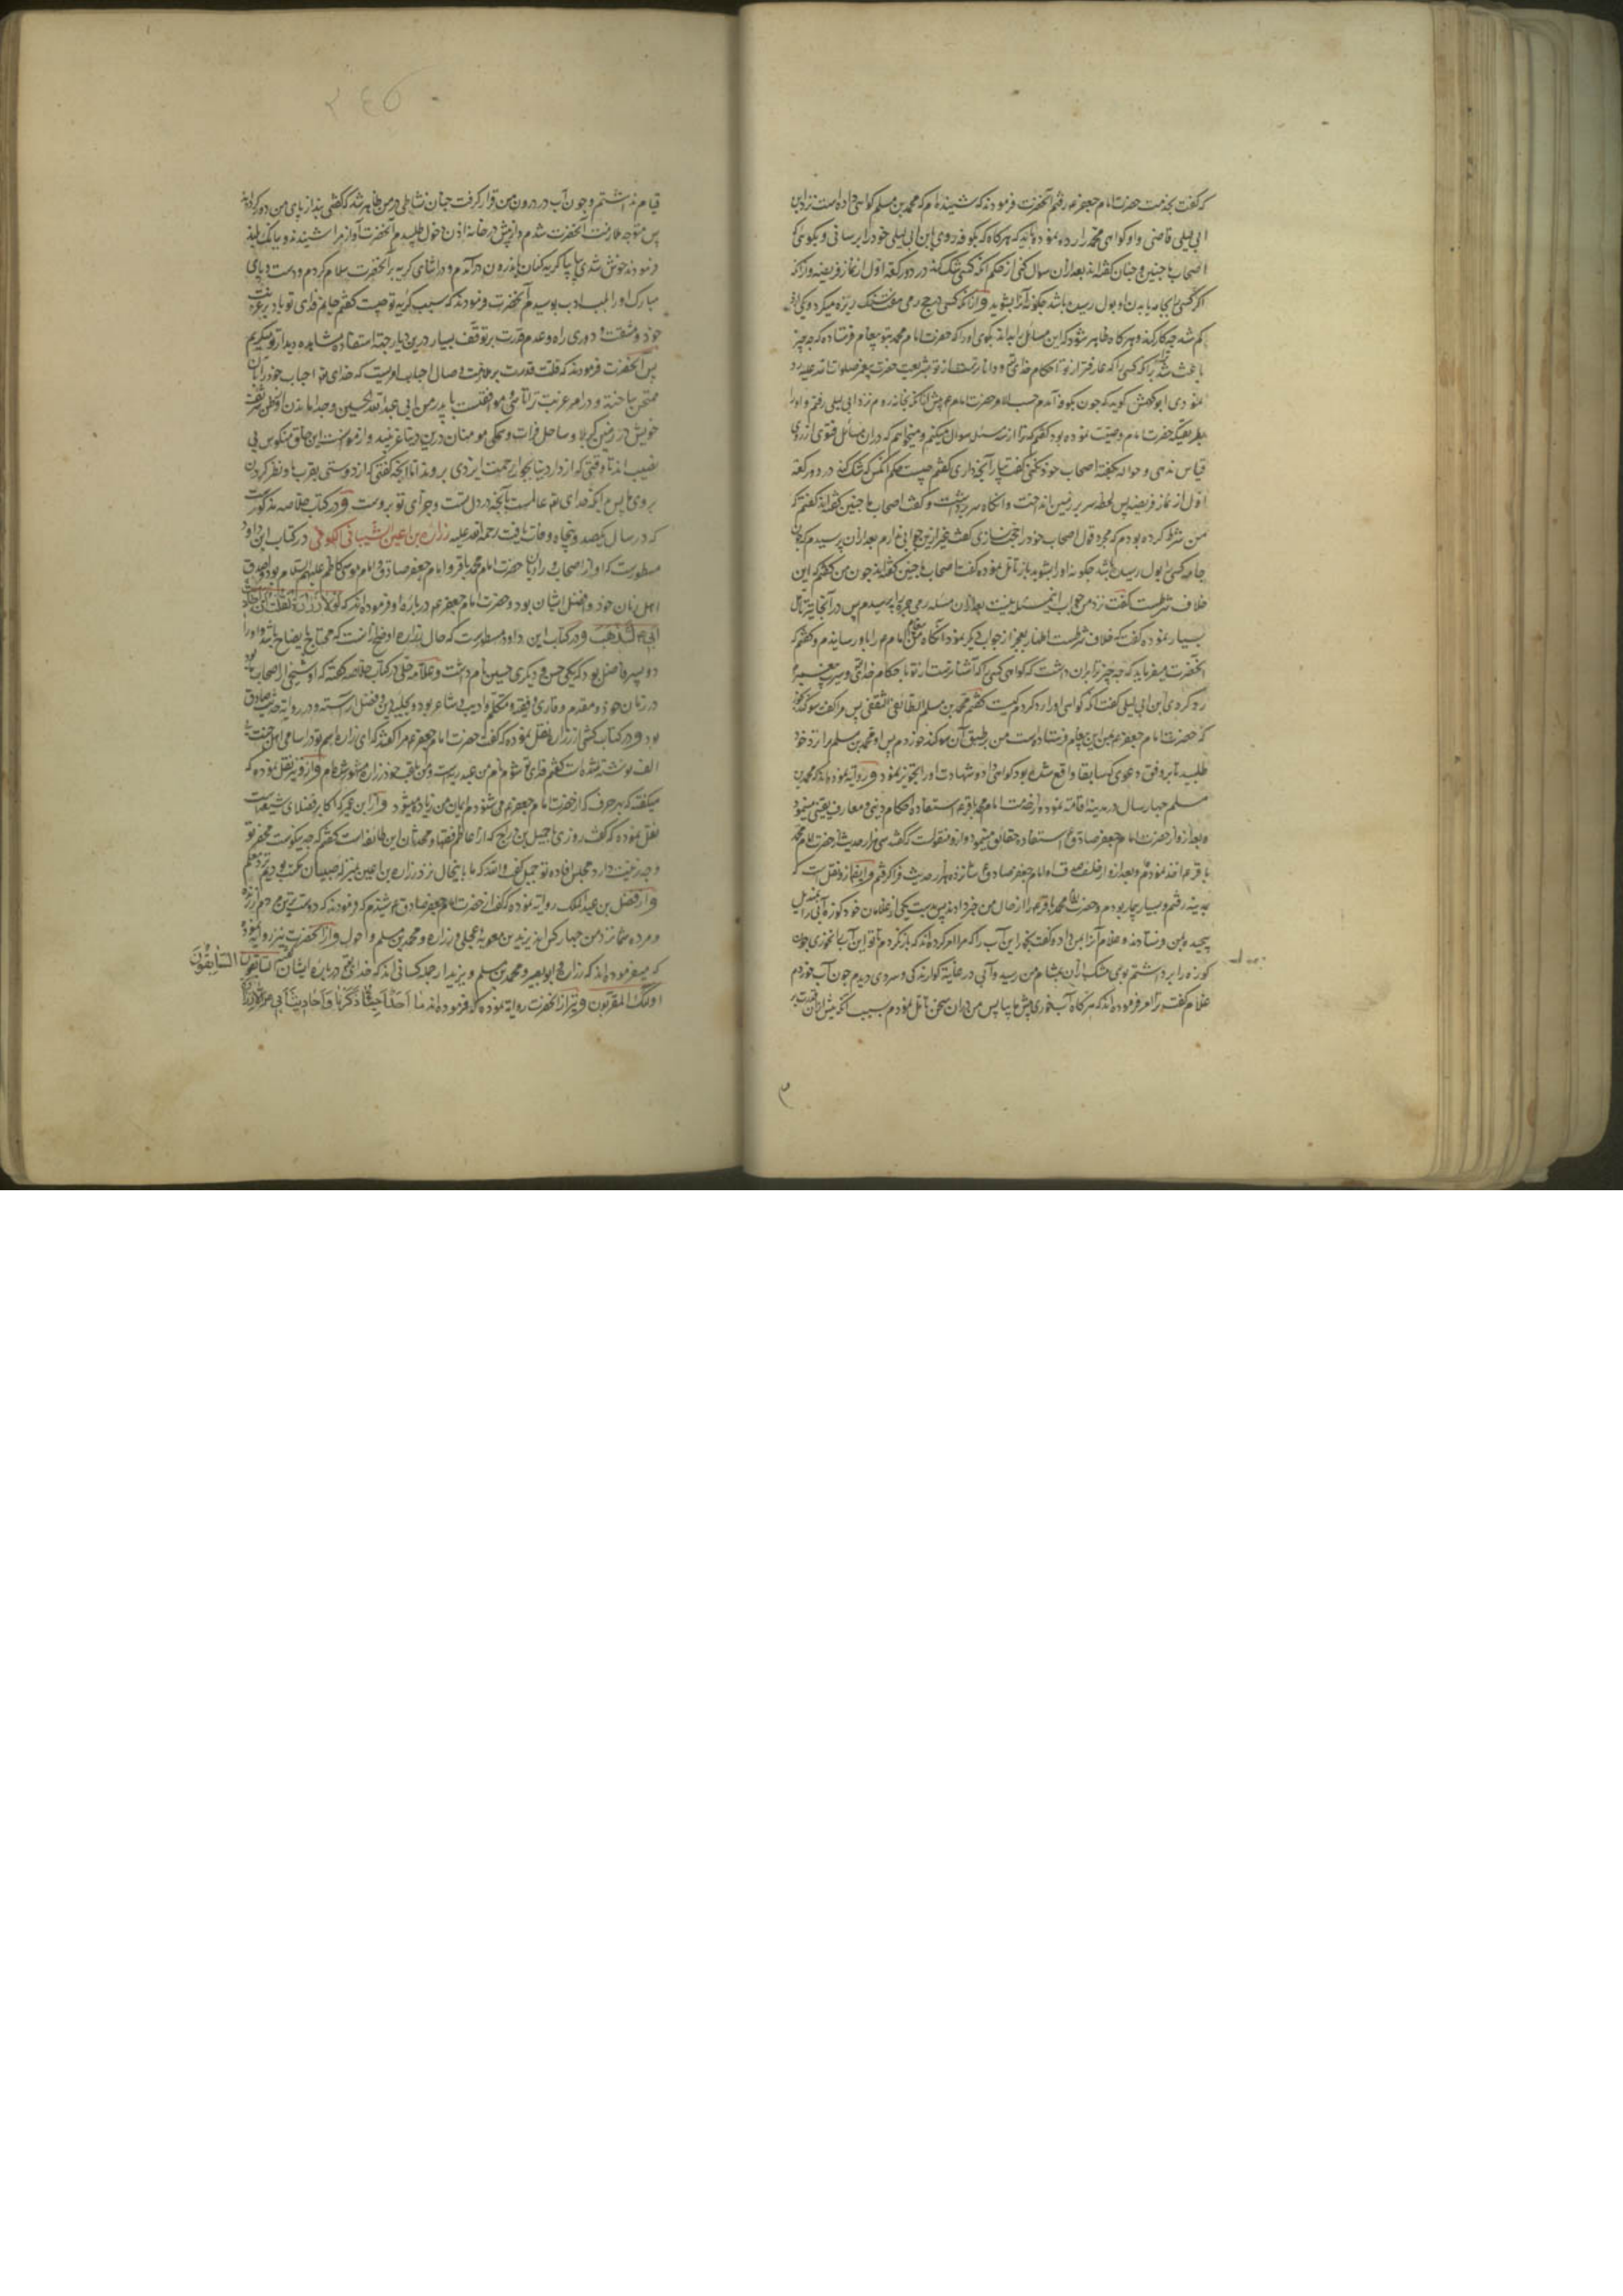 که گفت بخدمت حضرت امام جعفر ع رفتم آنحضرت فرمودند که شنیده‌ام که محمد بن مسلم گواهی داده است نزد ابن
ابی لیلی قاضی و او گواهی محمد را رد نموده باید که هرگاه که بکوفه روی بابن ابی لیلی خود را برسانی و بگوئی که
اصحاب ما چنین و چنان گفته‌اند بعد از آن سوال کنی از حکم آنکه کسی شک کند در دو رکعه اول از نماز فریضه و از آنکه
اگر کسی را جامه یا بدن او بول رسیده باشد چگونه آنرا بشوید و از آنکه کسی در حج رمی هفت سنک ریزه میکرد و یکی از آن
کم شد چه کار کند و هرگاه ظاهر شود که این مسائل نمیداند بگوی او را که حضرت امام محمد بتو پیغام فرستاده که چه چیز
باعث شد ترا که کسی را که عارفتر از تو باحکام خدای تع و داناترست از تو بشریعت حضرت پیغمبر صلوات الله علیه رد
نمودی ابو کهمش گوید که چون بکوفه آمدم حسب الامر حضرت امام ع پیش از آنکه بخانه روم نزد ابی لیلی رفتم و او را
بطریقیکه حضرت امام وصیت نموده بود گفتم که ترا از سه مسئله سوال میکنم و میخواهم که در آن مسائل فتوی از روی
قیاس ندهی و حواله بگفته اصحاب خود نکنی گفت بیار آنچه داری گفتم چیست حکم آنکس که شک کند در دو رکعه
اول از نماز فریضه پس لحظه سر بر زمین انداخت و آنگاه سر برداشت و گفت اصحاب ما چنین گفته‌اند گفتم که
من شرط کرده بودم که مجرد قال اصحاب خود را حجت نسازی گفت غیر ازین جوابی ندارم بعد از آن پرسیدم که بدن یا
جامه کسی را بول رسیده باشد چگونه او را بشوید باز تامل نموده گفت اصحاب ما چنین گفته‌اند چون من گفتم که این
خلاف شرطست گفت نزد من جواب این مسئله نیست بعد از آن مسئله رمی جمره را پرسیدم پس در آنجا نیز تامل
بسیار نموده گفت که خلاف شرطست اظهار بعجز از جواب دیگر نمود آنگاه من پیغام امام ع را باو رساندم و گفتم که
آنحضرت میفرماید که چه چیز ترا بران داشت که گواهی کسی را که آشناترست از تو باحکام خدای تع و سیرت پیغمبر ع
رد کردی ابن ابی لیلی گفت آنکه گواهی او را رد کردم کیست گفتم محمد بن مسلم الطائفی الثقفی پس مرا گفت سوگند بخور
که حضرت امام جعفر ع باین این پیغام فرستاده است من بر طبق آن سوگند خوردم پس او محمد بن مسلم را نزد خود
طلبید تا بر وفق دعوی که سابقا واقع شده بود گواهی او و شهادت او را تجویز نمود و روایه نموده‌اند که محمد بن
مسلم چهار سال در مدینه اقامه نموده و از حضرت امام محمد باقر ع استفاده احکام دینی و معارف یقینی مینمود
و بعد از او از حضرت امام جعفر صادق ع استفاده حقائق مینمود و از او منقولست که گفت سی هزار حدیث از حضرت امام محمد
باقر ع اخذ نمودم و بعد از او از خلف صدق او امام جعفر صادق ع شانزده هزار حدیث فرا گرفتم و ایضا از او نقل است که
بمدینه رفتم و بسیار بیمار بودم و حضرت امام محمد باقر ع را از حال من خبر دادند پس بدست یکی از غلامان خود کوزه آبی را بمندیل
پیچیده بمن فرستادند و غلام آنرا بمن داد و گفت بخور این آب را که مرا امر کرده‌اند که باز نگردم تا تو این آب را نخوری چون
کوزه را برداشتم بوی مشک از آن بمشام من رسید و آبی در غایت گوارندگی و سردی دیدم چون آب خوردم
غلام گفت ترا امر فرموده‌اند که هرگاه آب خوری پیش ما بیا پس من در آن سخن تامل نمودم بسبب آنکه پیش از آن قدرت بر
۲۴۵
قیام نداشتم و چون آب در درون من قرار گرفت چنان نشاطی در من ظاهر شد که گفتی بند از پای من دور کرده‌اند
پس متوجه ملازمت آنحضرت شدم و از پیش در خانه اذن دخول طلبیدم آنحضرت آواز مرا شنیدند و ببانک بلند
فرمودند خوش شدی بیا بیا گریه کنان باندرون درآمدم و در اثنای گریه بر آنحضرت سلام کردم و دست و پای
مبارک او را بلب ادب بوسیدم آنحضرت فرمودند که سبب گریه تو چیست گفتم جانم فدای تو باد بر غربت
خود و مشقت و دوری راه و عدم قدرت بر توقف بسیار درین دیار جهة استفاده مشاهده دیدار تو میگریم
پس آنحضرت فرمودند که قلت قدرت بر ملازمت و وصال احباب امریست که خدای تع احباب خود را بآن
ممتحن ساخته و در امر غربت ترا تاسی و موافقتست با پدر من ابی عبد الله الحسین و جدا ماندن او از وطن شریف
خویش در زمین کربلا و ساحل فرات و همگی مومنان درین دنیا غریبند و از موانست این خلق منکوس بی
نصیب‌اند تا وقتی که از دار دنیا بجوار رحمت ایزدی بروند اما آنچه گفتی که از دوستی بقرب ما و نظر کردن
بروی ما پس آنکه خدای تع عالمست بآنچه در دل تست و جزای تو بر اوست و در کتاب خلاصه مذکورست
که در سال یکصد و پنجاه وفات یافت رحمة الله علیه زراره بن اعین الشیبانی الکوفی در کتاب ابن داود
مسطورست که او از اصحاب و راویان حضرت امام محمد باقر و امام جعفر صادق و امام موسی کاظم علیهم السلام بود و اصدق
اهل زمان خود و افضل ایشان بود و حضرت امام جعفر ع درباره او فرموده‌اند که لولا زرارة لقلت ان احادیث
ابی ع ستذهب و در کتاب ابن داود مسطورست که حال زراره اوضح از آنست که محتاج بایضاح باشد و او را
دو پسر فاضل بود که یکی حسن و دیگری حسین نام داشت و علامه حلی در کتاب خلاصه گفته که او شیخی از اصحاب ما بود
در زمان خود و مقدم و قاری و فقیه و متکلم و ادیب و شاعر بود و بحلیه دین و فضل آراسته و در روایة حدیث صادق
بود و در کتاب کشی از زراره نقل نموده که گفت حضرت امام جعفر ع مرا گفتند که ای زراره اسم تو در اسامی اهل جنت بی
الف نوشته شده است گفتم فدای تو شوم نام من عبد ربه است و من بلقب خود زراره مشهور شده‌ام و از او نیز نقل نموده که
میگفته که بهر حرف که از حضرت امام جعفر ع می شنوم ایمان من زیاده میشود و از ابن عمیر که اکابر فضلای شیعه است
نقل نموده که گفت روزی با جمیل بن دراج که از اعاظم فقها و محدثان این طایفه است گفتم که چه نیکوست محضر تو
و چه زینت دارد مجلس افاده تو جمیل گفت والله که ما با اینحال نزد زراره بن اعین بمنزله صبیان مکتب بودیم نزد معلم
و از فضل بن عبد الملک روایه نموده که گفت از حضرت امام جعفر صادق ع شنیدم که فرمودند که دوسترین مردم از زنده
و مرده شما نزد من چهار کس‌اند یزید بن معویه عجلی و زراره و محمد بن مسلم و احول و از آنحضرت نیز روایه نموده
که میفرموده‌اند که زراره و ابو بصیر و محمد بن مسلم و یزید از جمله کسانی‌اند که خدای تع درباره ایشان گفته السابقون السابقون
اولئک المقربون و نیز از آنحضرت روایه نموده که فرموده‌اند ما احد احیی ذکرنا و احادیث ابی ع الا زرارة